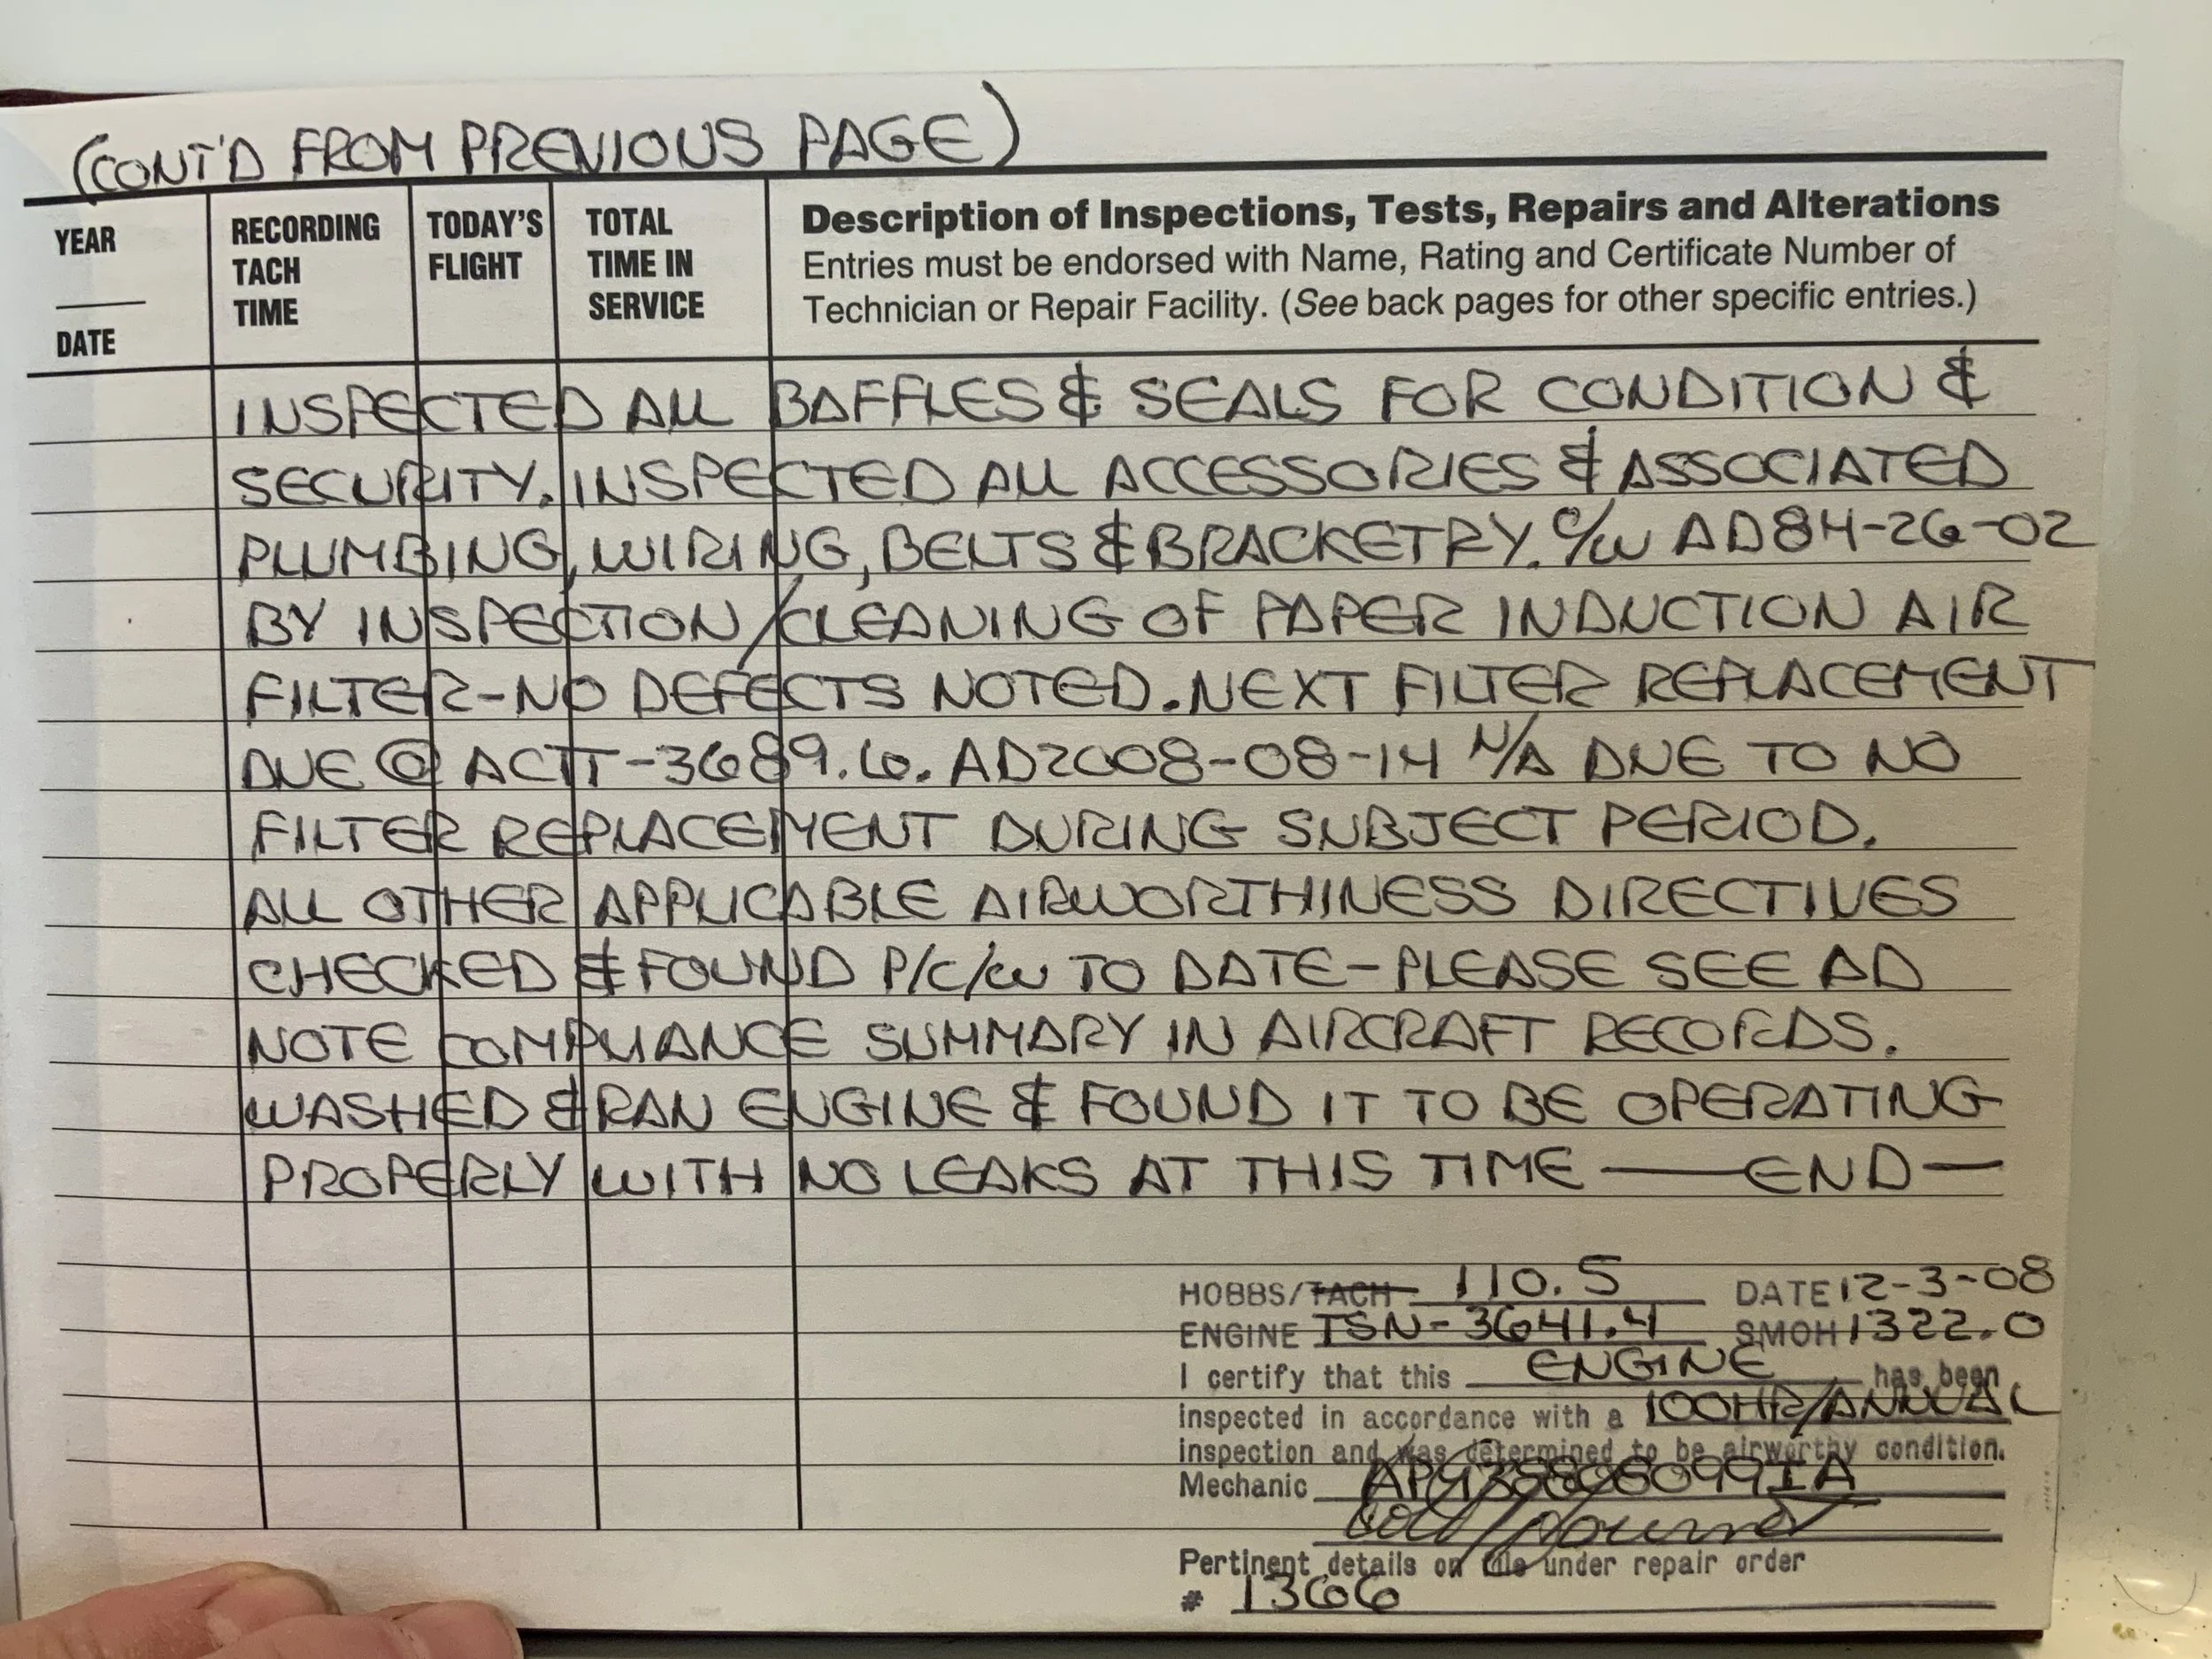 (CONT'D FROM PREVIOUS PAGE)
YEAR
DATE
RECORDING
TACH
TIME
TODAY'S
FLIGHT
TOTAL
TIME IN
SERVICE
Description of Inspections, Tests, Repairs and Alterations
Entries must be endorsed with Name, Rating and Certificate Number of
Technician or Repair Facility. (See back pages for other specific entries.)
INSPECTED ALL BAFFLES & SEALS FOR CONDITION &
SECURITY. INSPECTED ALL ACCESSORIES & ASSOCIATED
PLUMBING, WIRING, BELTS & BRACKETRY. C/W AD84-26-02
BY INSPECTION/CLEANING OF PAPER INDUCTION AIR
FILTER-NO DEFECTS NOTED. NEXT FILTER REPLACEMENT
DUE @ ACTT-3689.6. AD2008-08-14 N/A DUE TO NO
FILTER REPLACEMENT DURING SUBJECT PERIOD.
ALL OTHER APPLICABLE AIRWORTHINESS DIRECTIVES
CHECKED & FOUND P/C/W TO DATE-PLEASE SEE AD
NOTE COMPLIANCE SUMMARY IN AIRCRAFT RECORDS.
WASHED & RAN ENGINE & FOUND IT TO BE OPERATING
PROPERLY WITH NO LEAKS AT THIS TIME — END —
HOBBS/TACH 110.5 DATE 12-3-08
ENGINE TSN-3641.4 SMOH 1322.0
I certify that this ENGINE has been
inspected in accordance with a 100HR/ANNUAL
inspection and was determined to be airworthy condition.
Mechanic
Pertinent details on file under repair order
# 1366